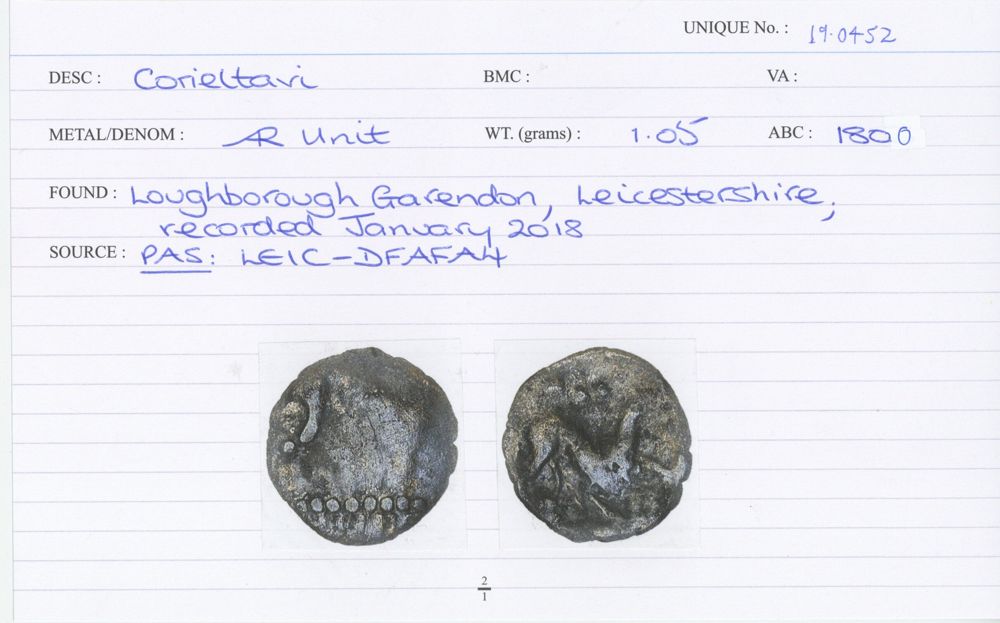 UNIQUE No. : 19.0452
DESC : Corieltavi BMC : VA :
METAL/DENOM : AR Unit WT. (grams) : 1.05 ABC : 1800
FOUND : Loughborough Garendon, Leicestershire,
recorded January 2018
SOURCE : PAS: LEIC-DFAFA4
2
1